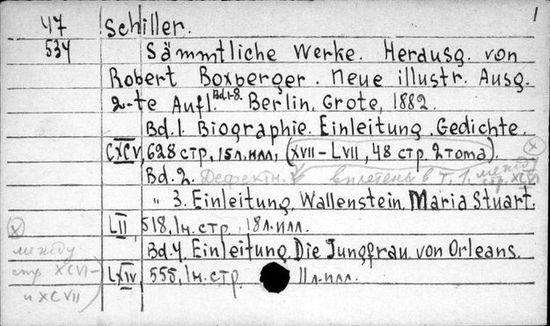 1
47 Schiller.
534 Sämmtliche Werke. Herausg. von
Robert Boxberger. Neue illustr. Ausg.
2-te Aufl. Bd.1-8. Berlin, Grote, 1882.
Bd.1. Biographie. Einleitung. Gedichte.
CXCV, 628 стр., 15 л. илл., (XVII-LVII, 48 стр. 2 тома).
Bd.2. Дефектн. вплетены в т. 1. между стр. XC
" 3. Einleitung. Wallenstein. Maria Stuart.
LII, 518, 1н. стр. 18 л. илл.
Bd.4. Einleitung. Die Jungfrau von Orleans.
LXIV, 555, 1н. стр. 11 л. илл.
между
стр XCVI-
и XCVII